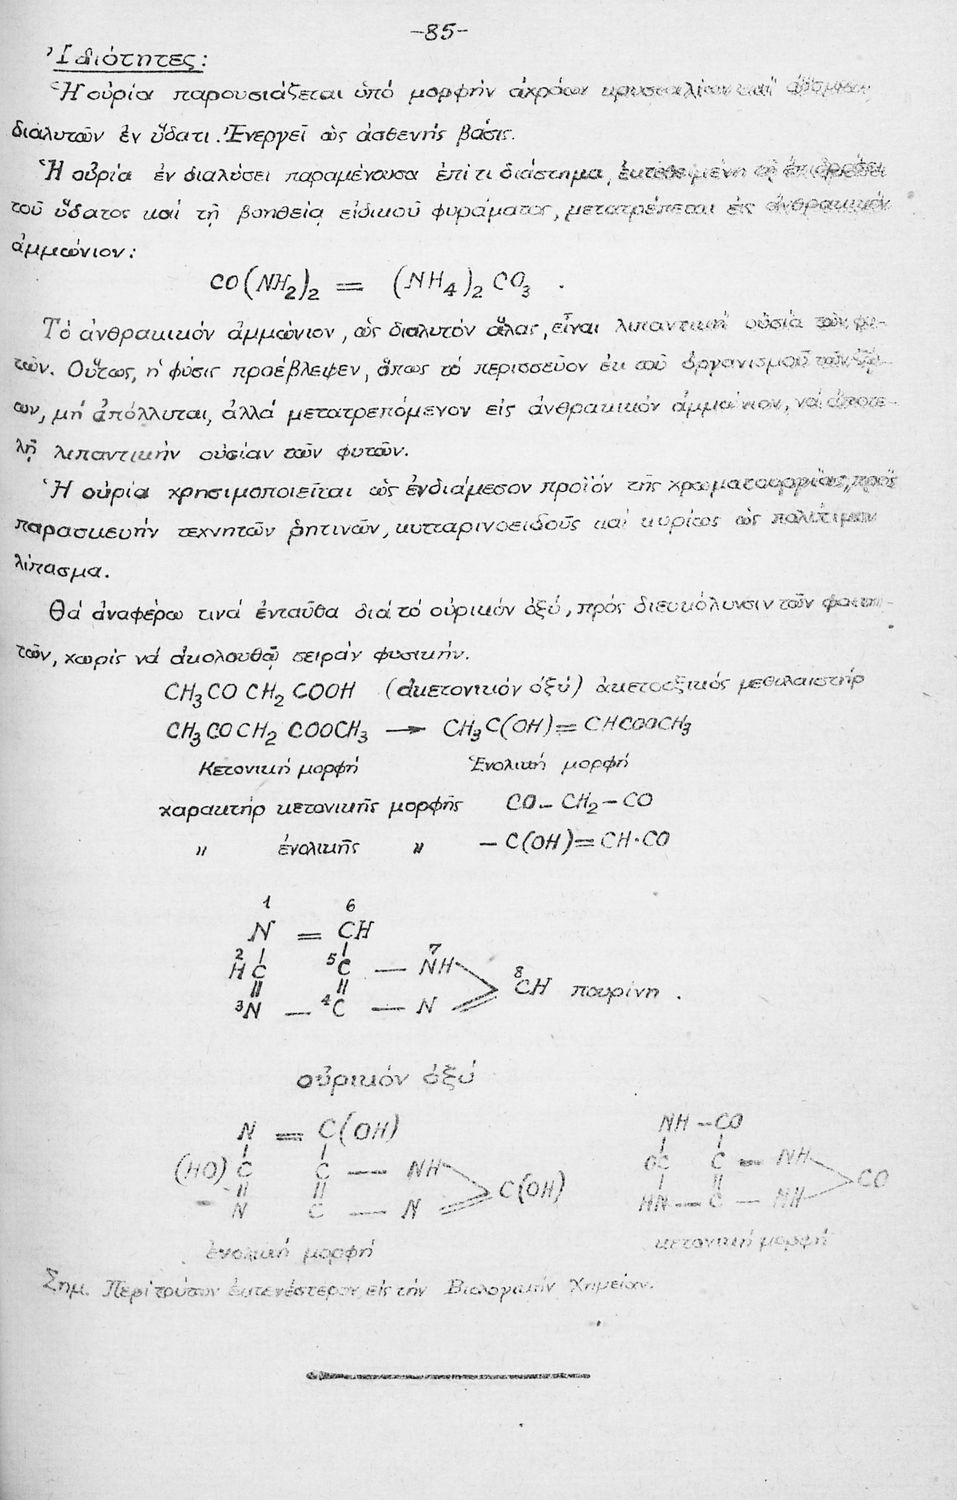 -85-
Ἰδιότητες:
Ἡ οὐρία παρουσιάζεται ὑπό μορφήν ἀχρόων κρυστάλλων καί
διαλυτῶν ἐν ὕδατι. Ἐνεργεῖ ὡς ἀσθενής βάσις.
Ἡ οὐρία ἐν διαλύσει παραμένουσα ἐπί τι διάστημα, ἐκτεθειμένη τῇ ἐπιδράσει
τοῦ ὕδατος καί τῇ βοηθείᾳ εἰδικοῦ φυράματος, μετατρέπεται εἰς ἀνθρακικόν
ἀμμώνιον:
CO(NH2)2 = (NH4)2 CO3 .
Τό ἀνθρακικόν ἀμμώνιον, ὡς διαλυτόν ἅλας, εἶναι λιπαντική οὐσία τῶν φυ-
τῶν. Οὕτως, ἡ φύσις προέβλεψεν, ὅπως τό περισσεῦον ἐκ τοῦ ὀργανισμοῦ τῶν ζῴ-
ων, μή ἀπόλλυται, ἀλλά μετατρεπόμενον εἰς ἀνθρακικόν ἀμμώνιον, νά ἀποτε-
λῇ λιπαντικήν οὐσίαν τῶν φυτῶν.
Ἡ οὐρία χρησιμοποιεῖται ὡς ἐνδιάμεσον προϊόν τῆς χρωματουργίας, πρός
παρασκευήν τεχνητῶν ῥητινῶν, κυτταρινοειδοῦς καί κυρίως ὡς πολύτιμον
λίπασμα.
Θά ἀναφέρω τινά ἐνταῦθα διά τό οὐρικόν ὀξύ, πρός διευκόλυνσιν τῶν φοιτη-
τῶν, χωρίς νά ἀκολουθῶ σειράν φυσικήν.
CH3 CO CH2 COOH (ἀκετονικόν ὀξύ) ἀκετοξικός μεθυλαιστήρ
CH3 CO CH2 COOCH3 → CH3 C(OH) = CHCOOCH3
Κετονική μορφή Ἐνολική μορφή
χαρακτήρ κετονικῆς μορφῆς CO - CH2 - CO
" ἐνολικῆς " - C(OH) = CH·CO
1 6
N = CH
2 HC 5 C — NH 7
8 CH πουρίνη .
3 N — 4 C — N
οὐρικόν ὀξύ
N = C(OH) NH - CO
(HO) C C — NH OC C — NH
C(OH) CO
N C — N HN — C — NH
ἐνολική μορφή κετονική μορφή
Σημ. Περί τούτων ἐκτενέστερον εἰς τήν Βιολογικήν Χημείαν.